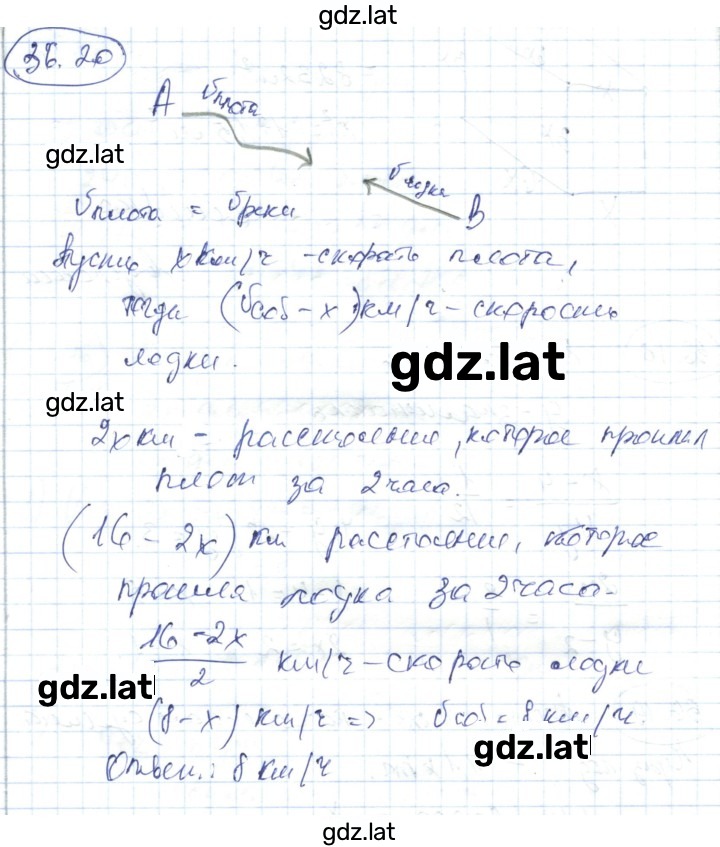 gdz.lat
36.20
A υплота
gdz.lat
υлодки
B
υплота = υреки
Пусть x км/ч - скорость плота,
тогда (υсоб - x) км/ч - скорость
лодки.
gdz.lat
gdz.lat
2x км - расстояние, которое проплыл
плот за 2 часа.
(16 - 2x) км расстояние, которое
прошла лодка за 2 часа.
16 - 2x
2
км/ч - скорость лодки
gdz.lat
(8 - x) км/ч => υсоб = 8 км/ч.
gdz.lat
Ответ: 8 км/ч
gdz.lat